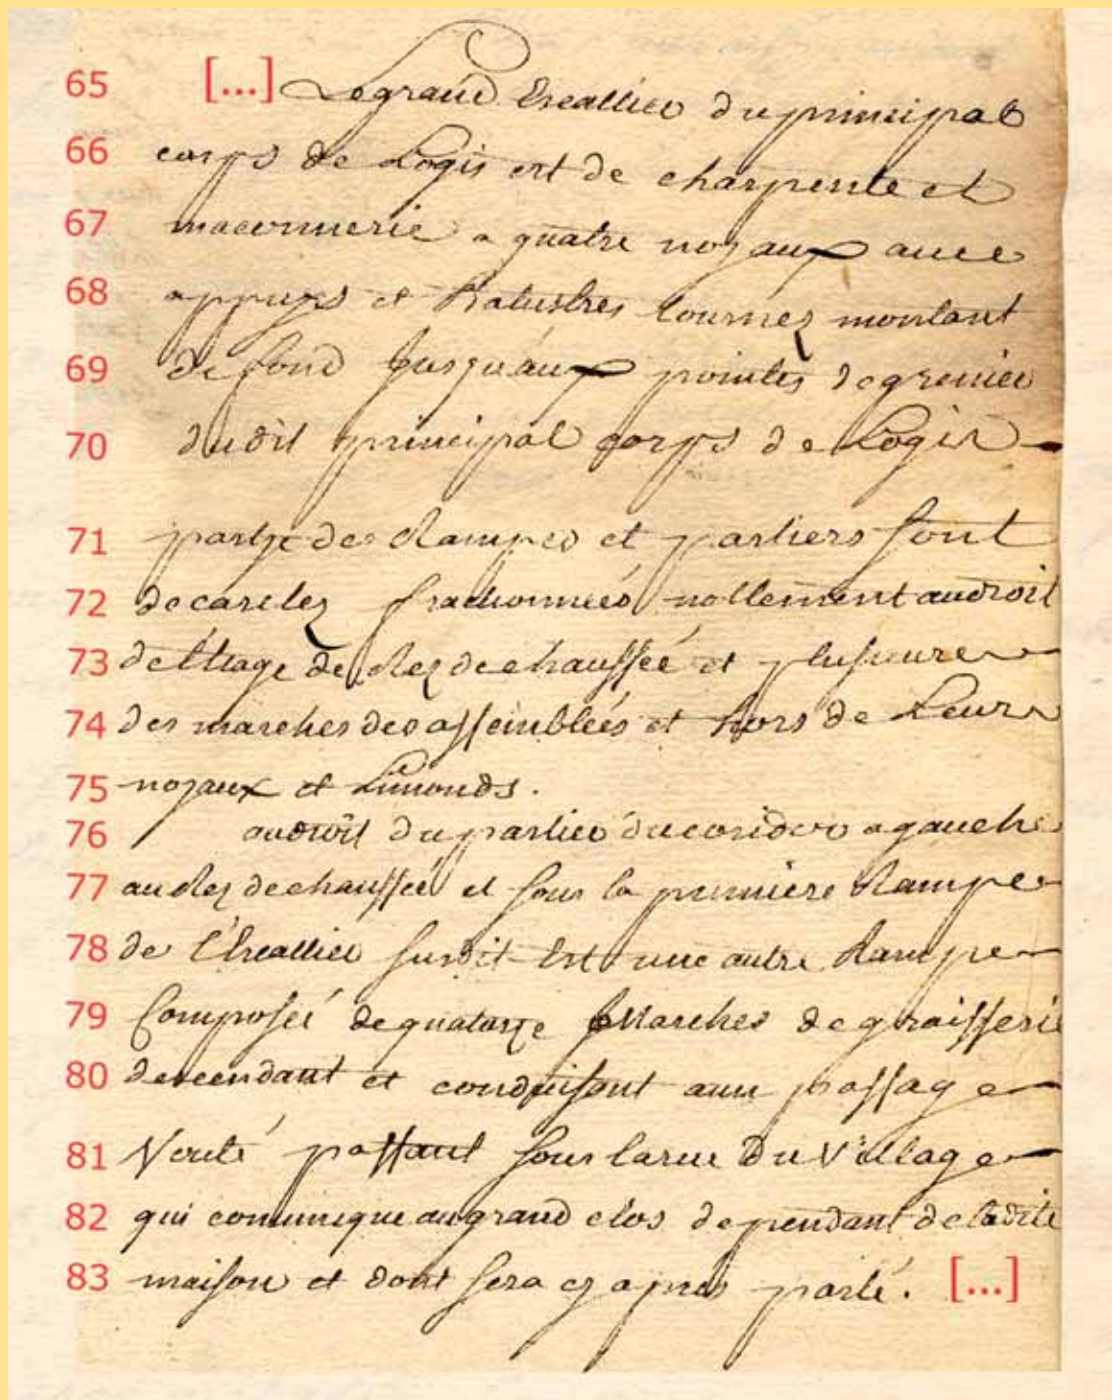 65 [...] Le grand Escallier du principal
66 corps de Logis est de charpente et
67 maconnerie a quatre noyaux avec
68 appuys et Balustres tournez montant
69 de fond Jusqu'aux pointes de grenier
70 dudit principal corps de Logis
71 partye des Rampes et partiers sont
72 de careles fractionnées nottement audroit
73 de l'étage de Rez de chaussée et plusieure
74 des marches desassemblées et hors de Leurs
75 noyaux et Limonds.
76 audroit du partier du coridor a gauche
77 au Rez de chaussée et sous la premiere Rampe
78 de l'Escallier susdit Est une autre Rampe
79 Composée de quatorze Marches de graisserie
80 descendant et conduisant aun passage
81 Vouté passant sous la rue Du Village
82 qui comunique au grand clos dependant de ladite
83 maison et dont sera cy apres parlé. [...]